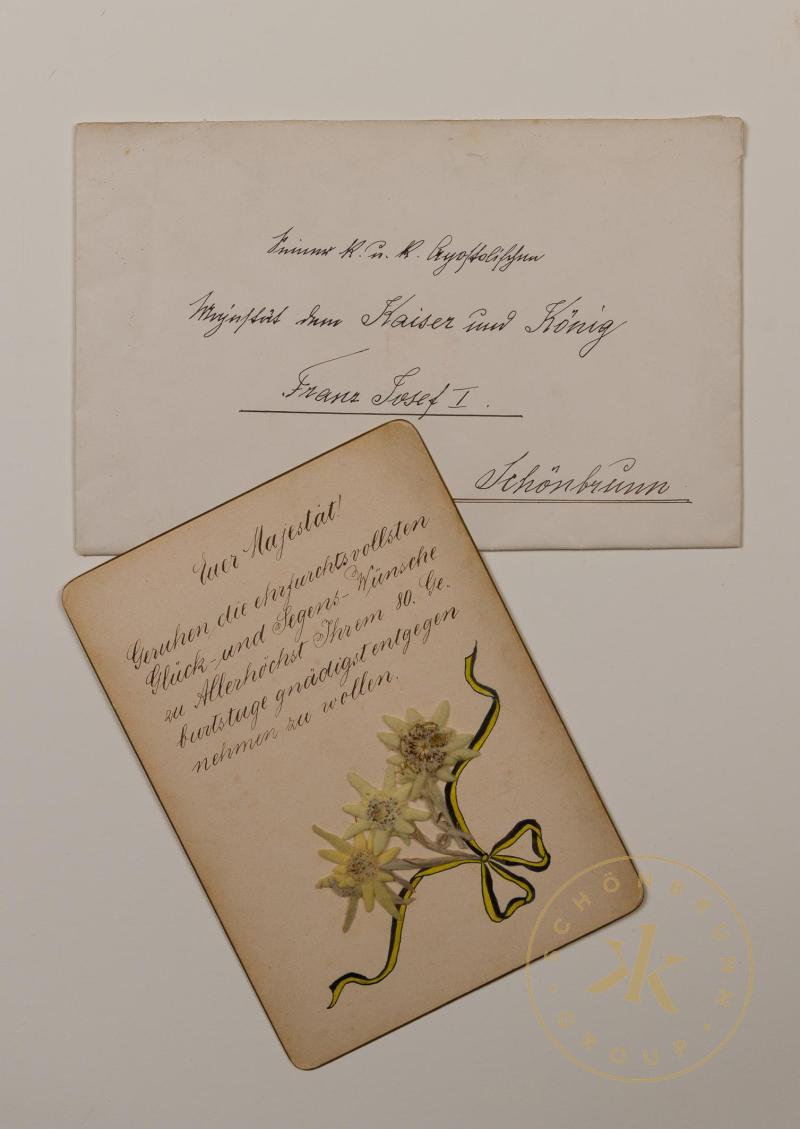 Seiner k. u. k. Apostolischen
Majestät dem Kaiser und König
Franz Josef I.
Schönbrunn
Euer Majestät!
Geruhen die ehrfurchtsvollsten
Glück- und Segens-Wünsche
zu Allerhöchst Ihrem 80. Ge-
burtstage gnädigst entgegen
nehmen zu wollen.
SCHÖNBRUNN
GROUP